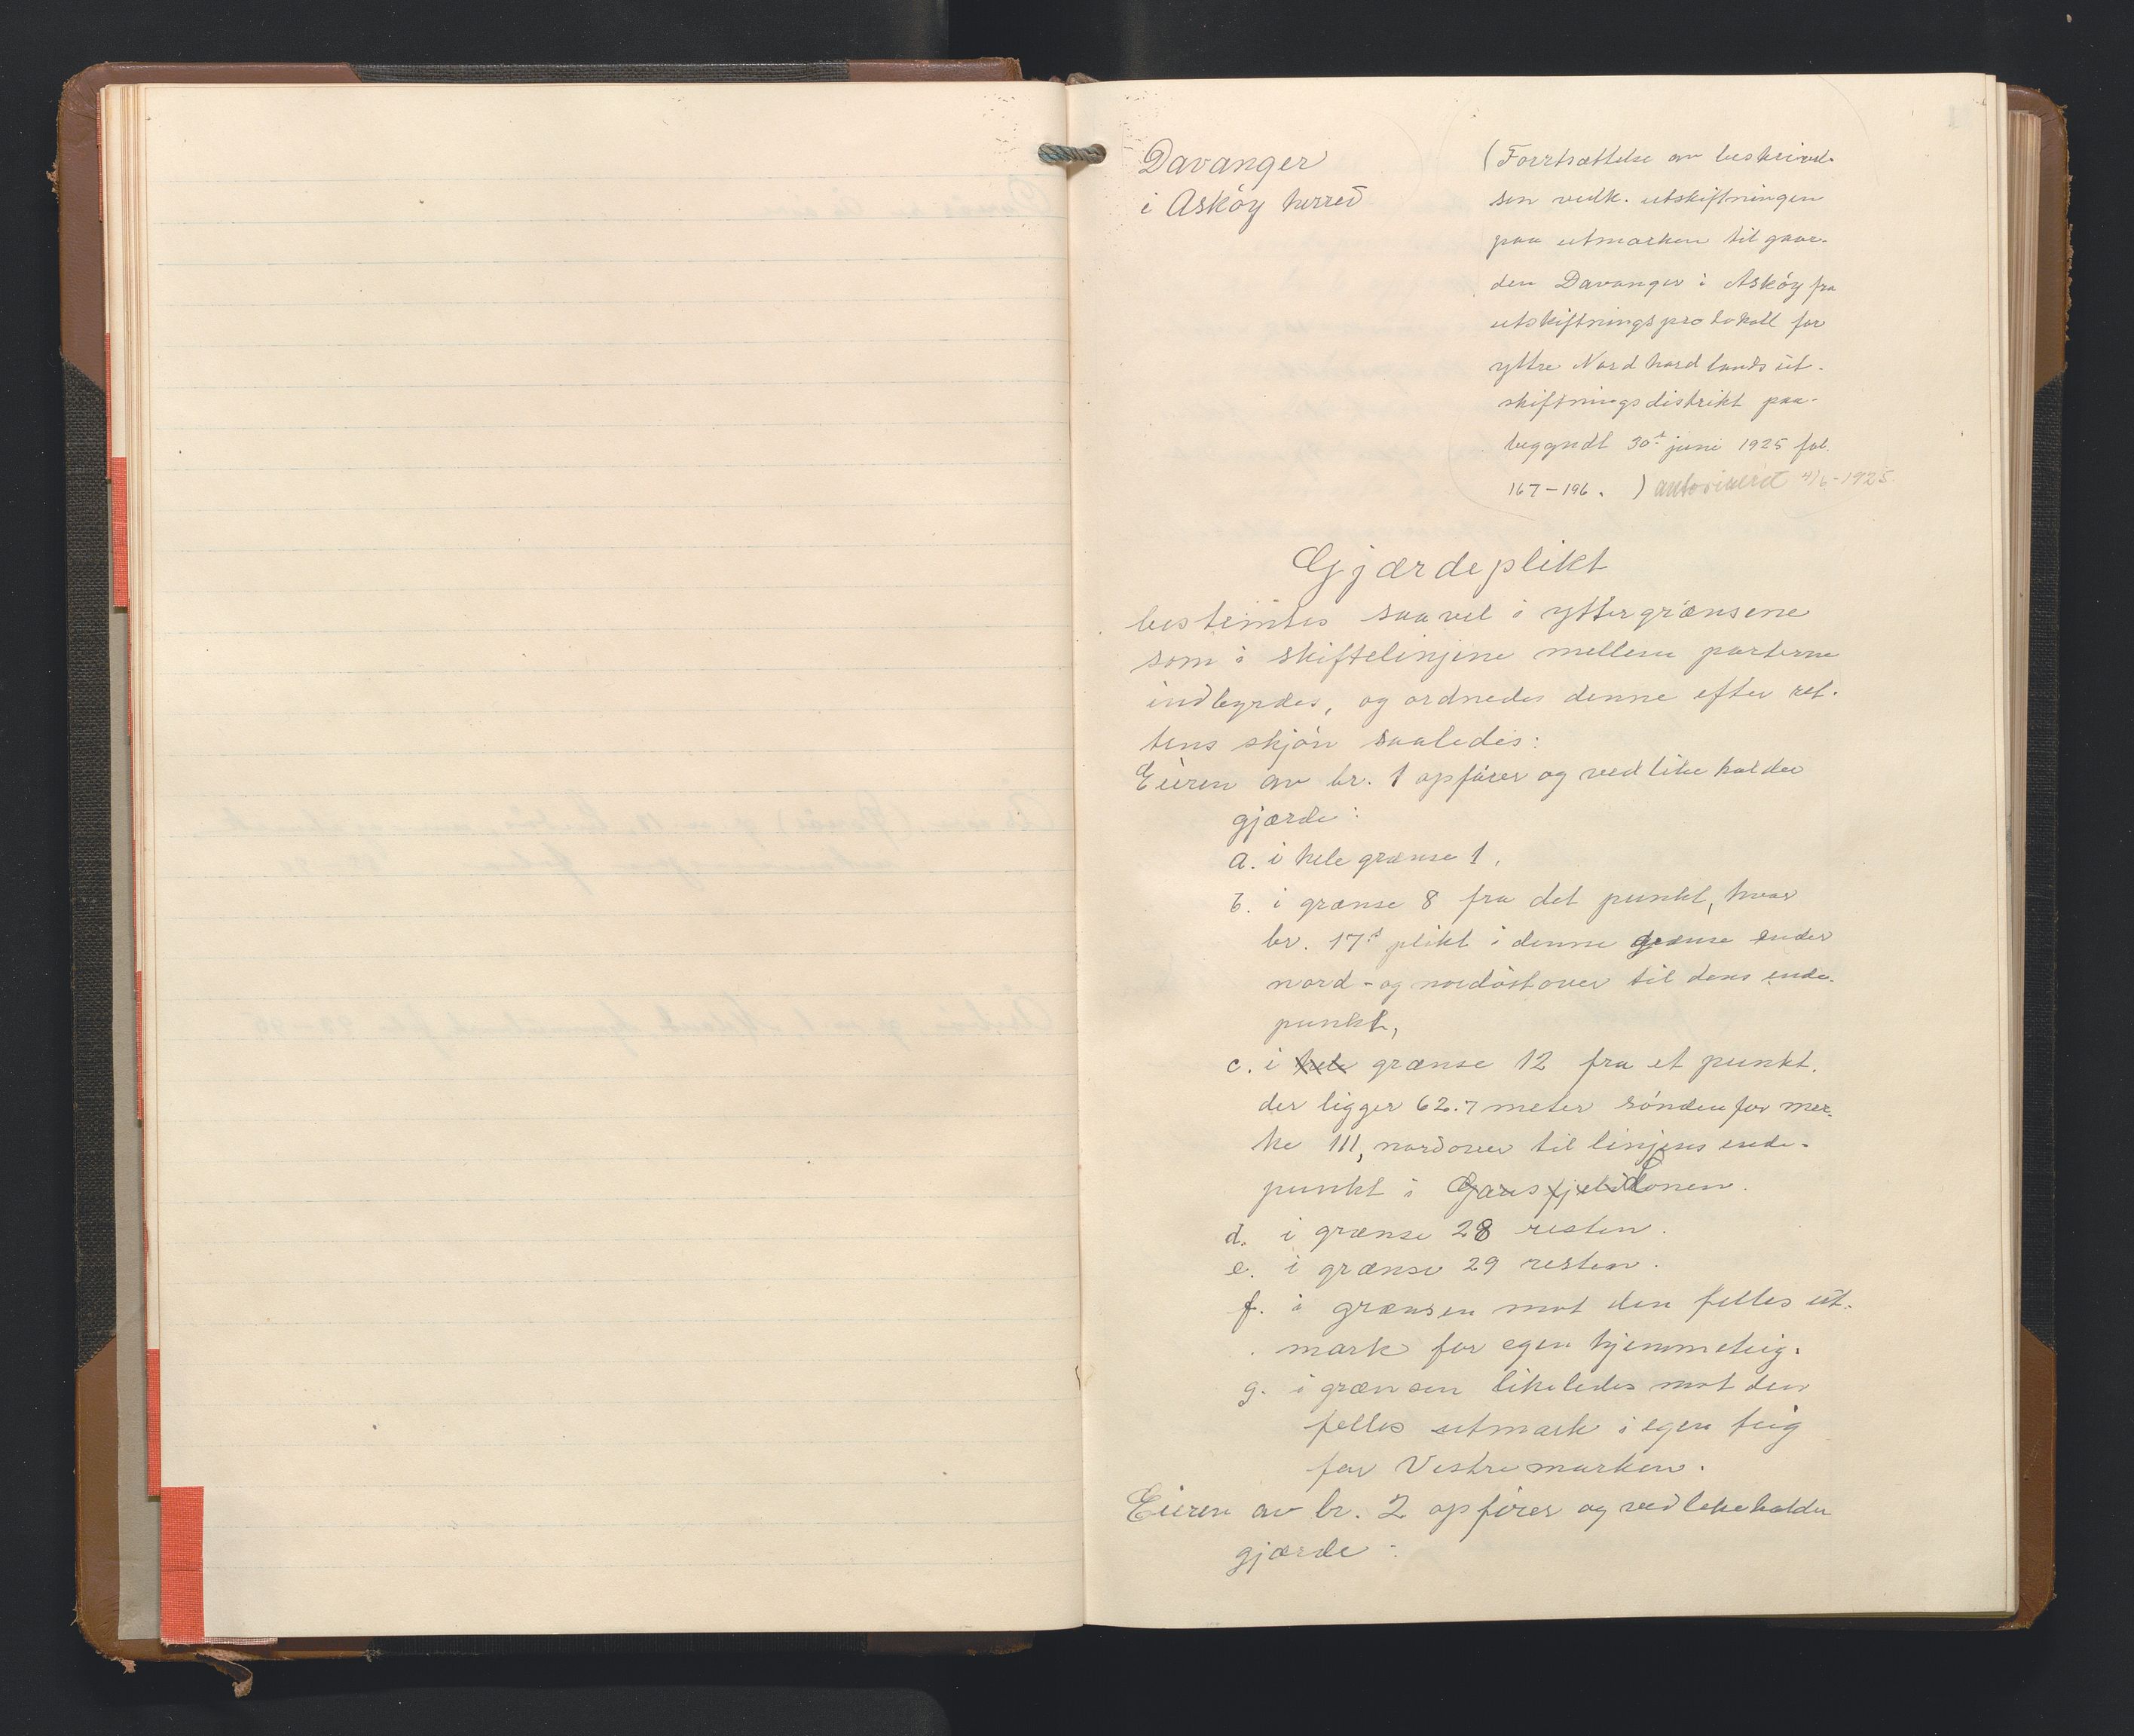 Davanger
i Asköy herred
(Fortsættelse av beskrivel-
sen vedk. utskiftningen
paa utmarken til gaar-
den Davanger i Asköy fra
utskiftningsprotokoll for
yttre Nordhordlands ut-
skiftningsdistrikt paa-
begyndt 30t juni 1925 fol.
167-196. ) autoriseret 4/6-1925.
Gjærdeplikt
bestemtes saavel i yttergrænsene
som i skiftelinjene mellem parterne
indbyrdes, og ordnedes denne efter ret-
tens skjön saaledes:
Eieren av br. 1 opförer og vedlikeholder
gjærde:
a. i hele grænse 1,
b. i grænse 8 fra det punkt, hvor
br. 17s plikt i denne grænse ender
nord- og nordöstover til dens ende-
punkt,
c. i hele grænse 12 fra et punkt,
der ligger 62.7 meter sönden for mer-
ke III, nordover til linjens ende-
punkt i
d. i grænse 28 resten.
e. i grænse 29 resten.
f. i grænsen mot den felles ut-
mark for egen hjemmeteig.
g. i grænsen likeledes mot den
felles utmark i egen teig
for Vestremarken.
Eieren av br. 2 opförer og vedlikeholder
gjærde: